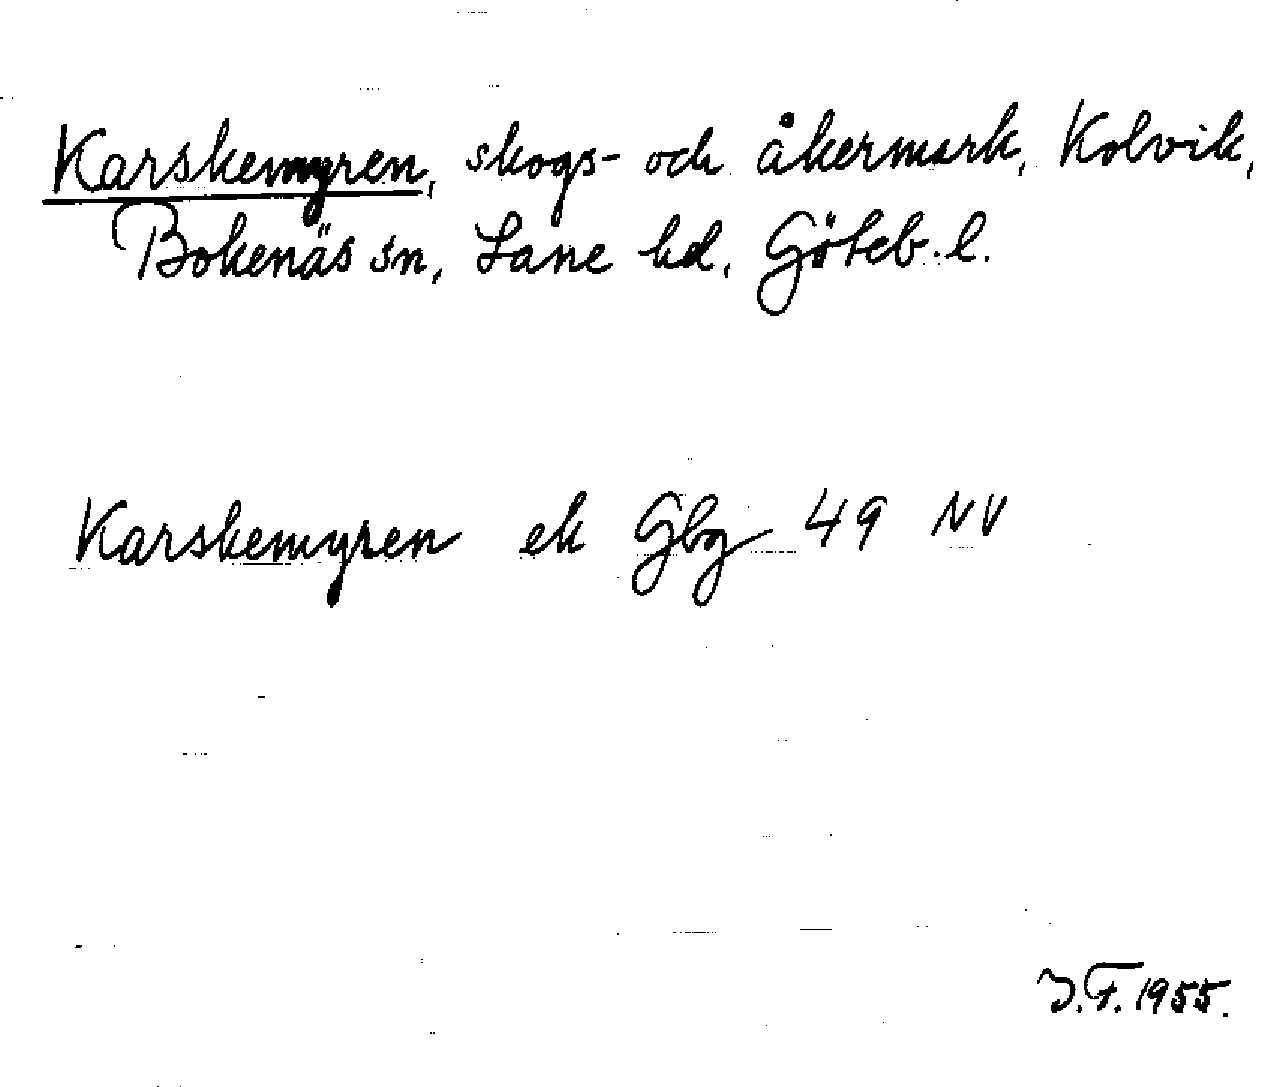 Karskemyren, skogs- och åkermark, Kolvik,
Bokenäs sn, Lane hd, Göteb. l.
Karskemyren ek Gbg 49 NV
J.F. 1955.